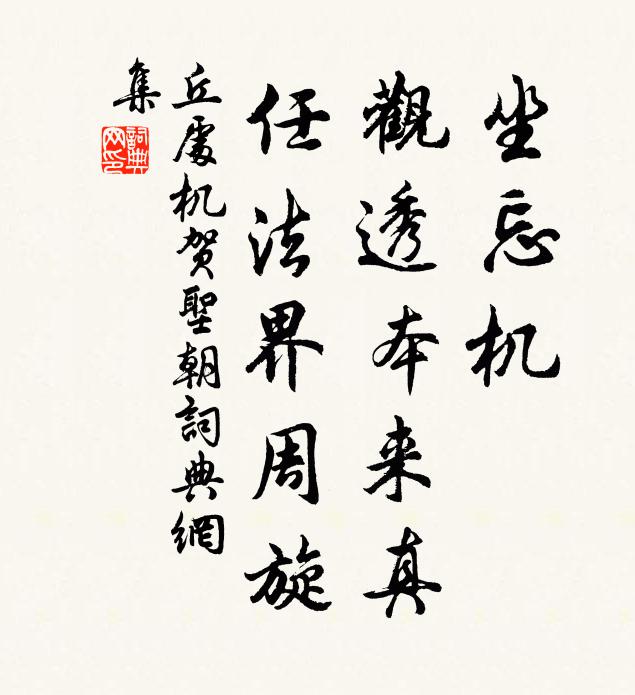 坐忘机
觀透本来真
任法界周旋
丘處机贺聖朝詞典網
集
詞典
网印